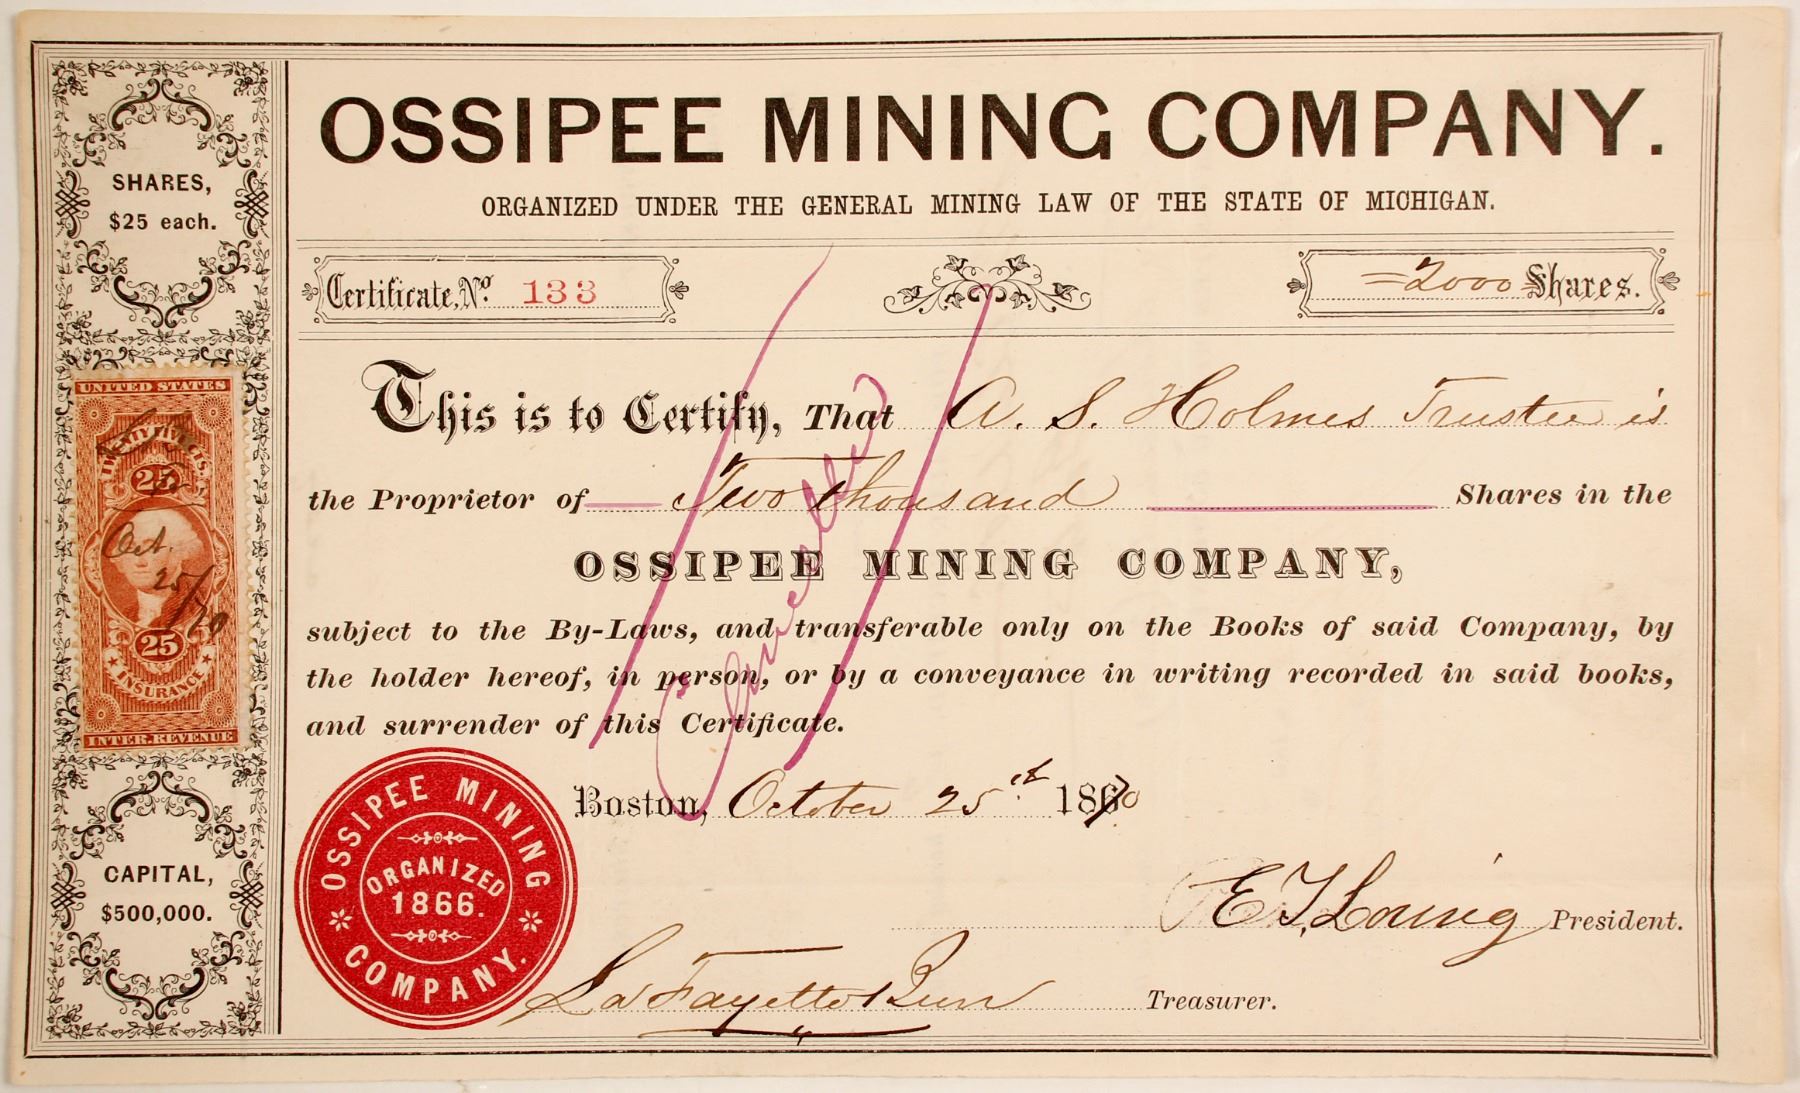 OSSIPEE MINING COMPANY.
ORGANIZED UNDER THE GENERAL MINING LAW OF THE STATE OF MICHIGAN.
SHARES,
$25 each.
Certificate, No. 133
=2000= Shares.
This is to Certify, That A. S. Holmes Trustee is
the Proprietor of Two thousand Shares in the
OSSIPEE MINING COMPANY,
subject to the By-Laws, and transferable only on the Books of said Company, by
the holder hereof, in person, or by a conveyance in writing recorded in said books,
and surrender of this Certificate.
Cancelled
Boston, October 25th 1870
E. T. Loring President.
LaFayette Burr Treasurer.
UNITED STATES
TWENTY FIVE CTS.
25
Oct.
25/70
25
INSURANCE
INTER. REVENUE
CAPITAL,
$500,000.
OSSIPEE MINING
ORGANIZED
1866.
COMPANY.